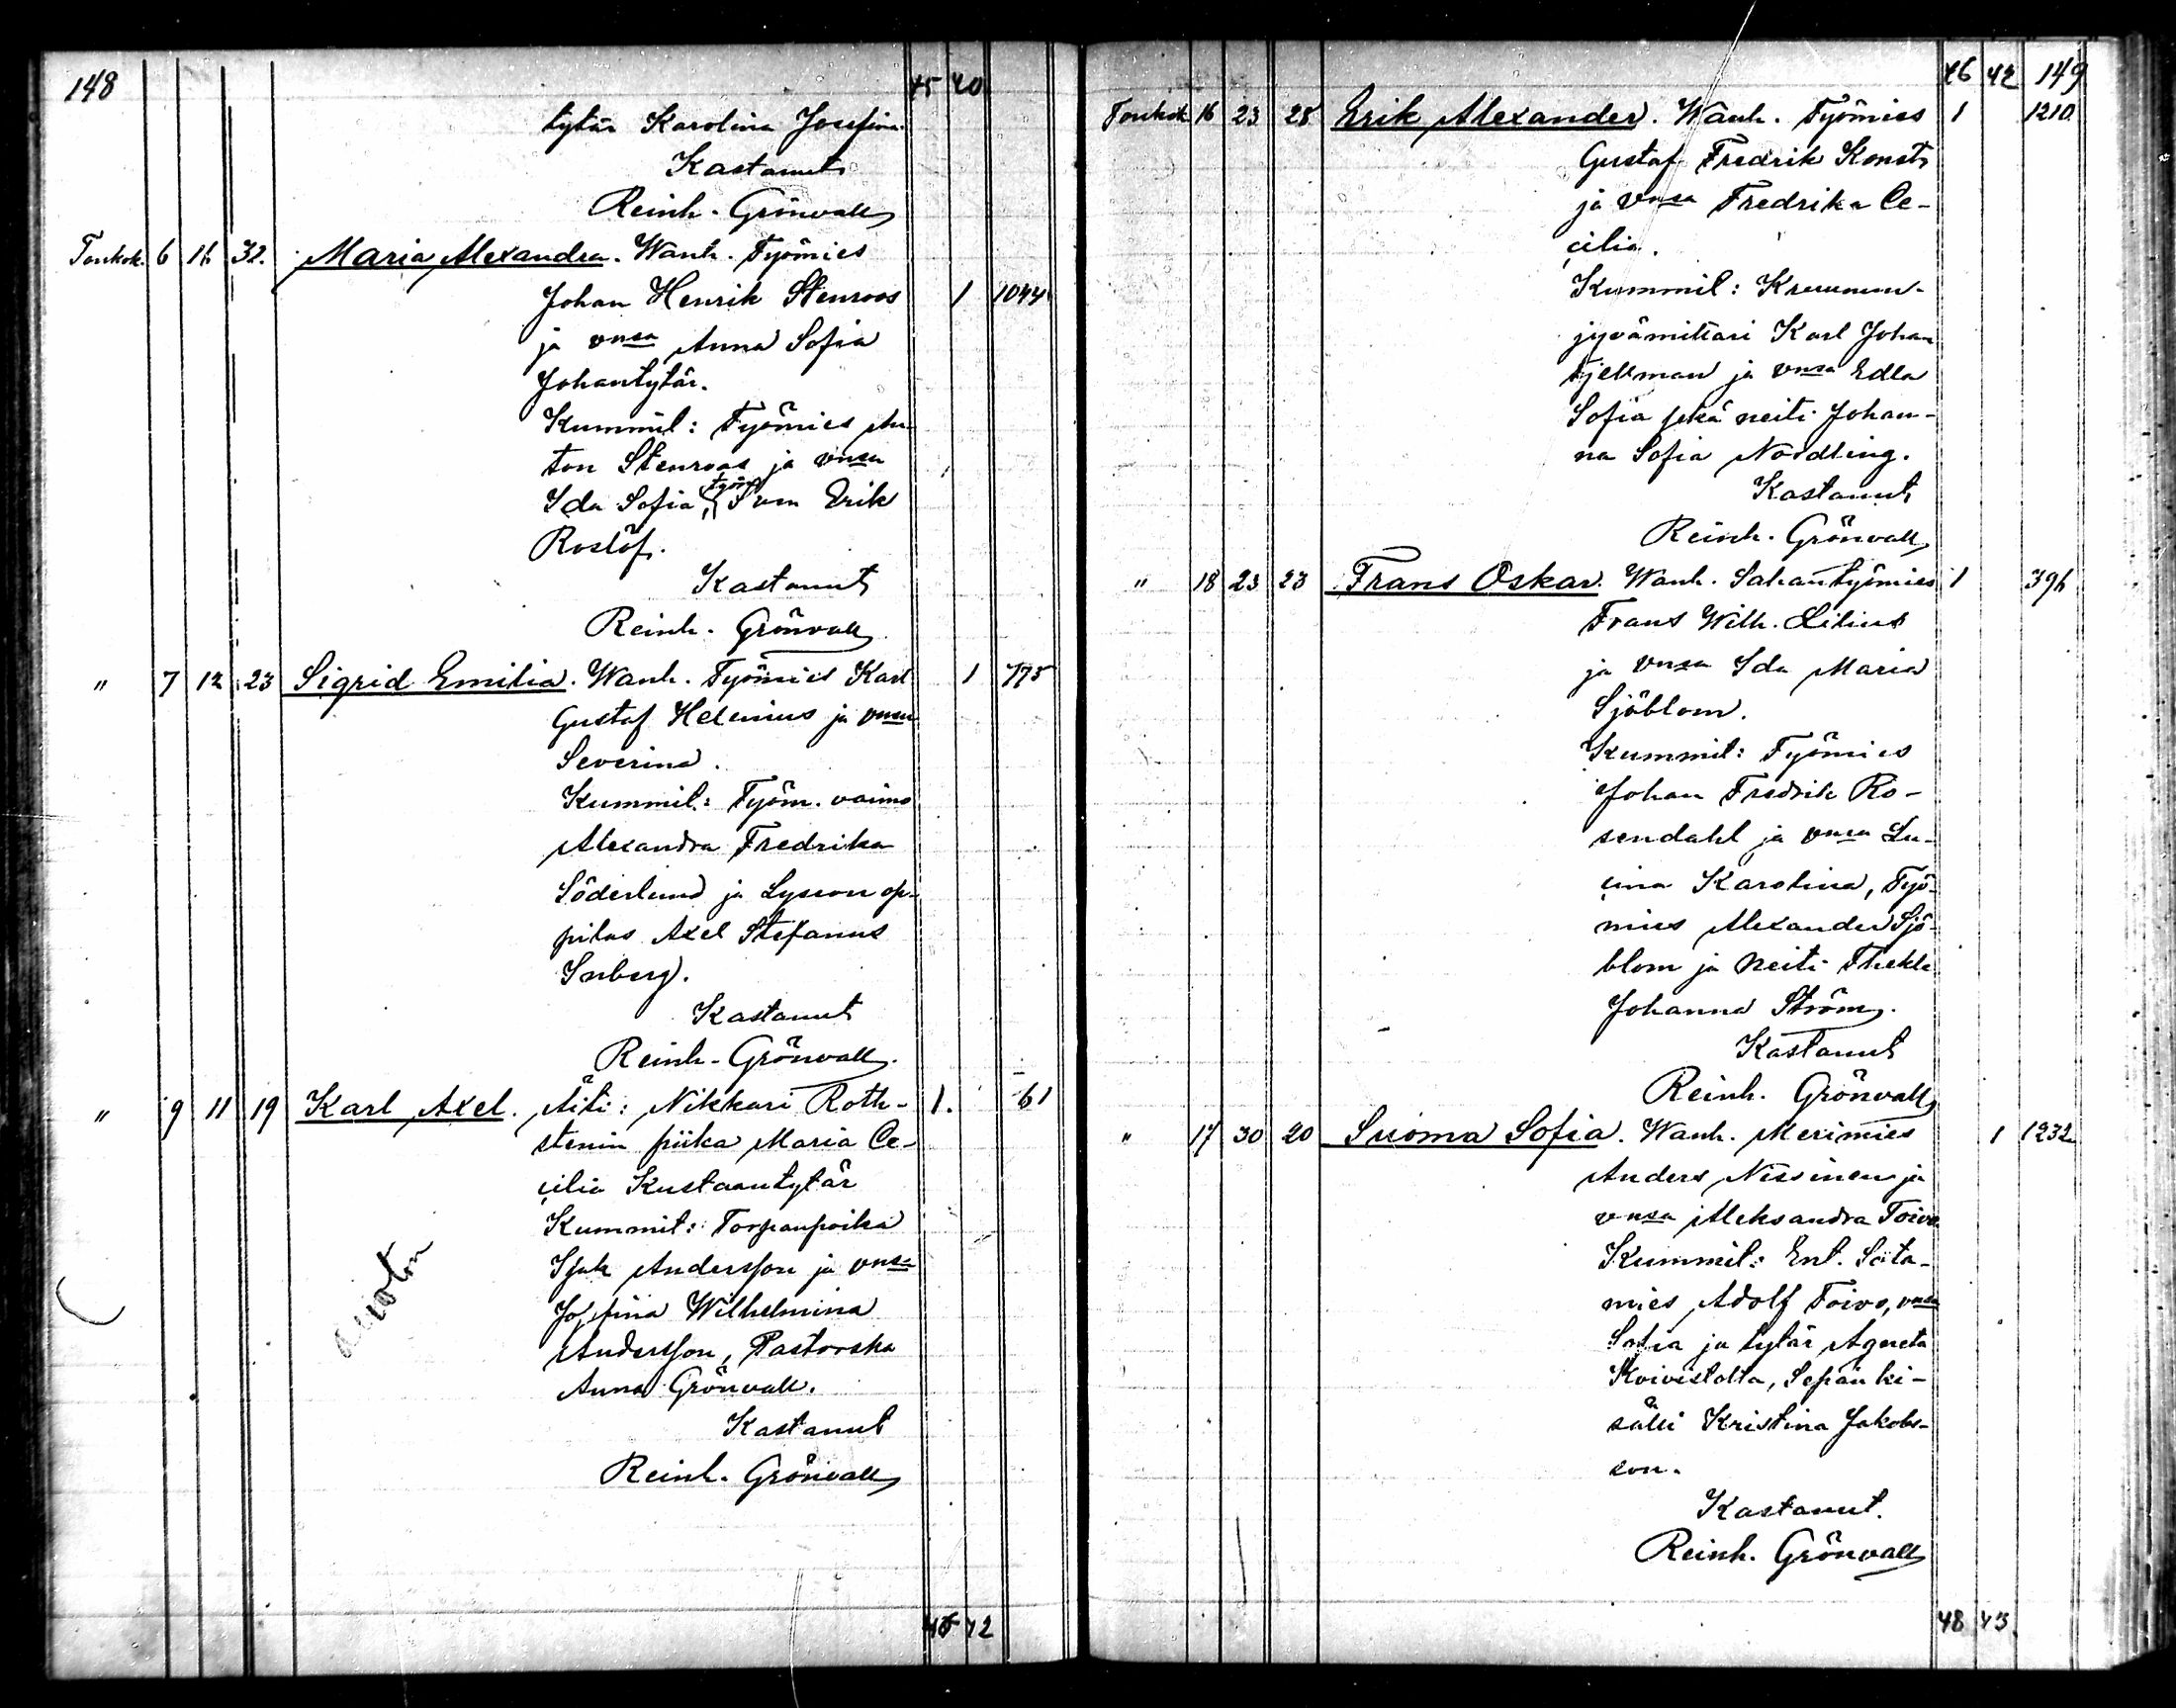 148 45 40
tytär Karolina Josefina.
Kastanut
Reinh. Grönvall
Toukok. 6 16 32. Maria Alexandra. Wanh. Työmies
Johan Henrik Stenroos 1 1044
ja vnsa Anna Sofia
Johantytär.
Kummit: Työmies An-
ton Stenroos ja vnsa
Ida Sofia, työm Erik
Roslöf.
Kastanut
Reinh. Grönvall
" 7 12 23 Sigrid Emilia. Wanh. Työmies Karl 1 775
Gustaf Helenius ja vnsa
Severina.
Kummit: Työm. vaimo
Alexandra Fredrika
Söderlund ja Lyseon op-
pilas Axel Stefanus
Kastanut
Reinh. Grönvall.
" 9 11 19 Karl Axel. Äiti: Nikkari Roth- 1. 61
stenin piika Maria Ce-
cilia Kustaantytär
Kummit: Torpanpoika
Andersson ja vnsa
Josefina Wilhelmina
Andersson, Pastorska
Anna Grönvall.
Kastanut
Reinh. Grönvall
avioton
45 42
46 42 149
Toukok 16 23 28 Erik Alexander. Wanh. Työmies 1 1210
Gustaf Fredrik Konst
ja vnsa Fredrika Ce-
cilia.
Kummit: Kruunun-
jyvämittari Karl Johan
Tjellman ja vnsa Edla
Sofia sekä neiti Johan-
na Sofia Nordling.
Kastanut
Reinh. Grönvall
" 18 23 23 Frans Oskar. Wanh. Sahantyömies 1 396
Frans Wilh. Lilius
ja vnsa Ida Maria
Sjöblom.
Kummit: Työmies
Johan Fredrik Ro-
sendahl ja vnsa Lu-
cina Karolina, Työ-
mies Alexander Sjö-
blom ja Neiti Thekla
Johanna Ström.
Kastanut
Reinh. Grönvall
" 17 30 20 Suoma Sofia. Wanh. Merimies 1 1232
Anders Nissinen ja
vnsa Aleksandra Toivo
Kummit: Ent. Sota-
mies Adolf Toivo, vnsa
Sofia ja tytär Agneta
Koivistolta, Sepän ki-
sälli Kristina Jakobs-
son.
Kastanut.
Reinh. Grönvall
48 43